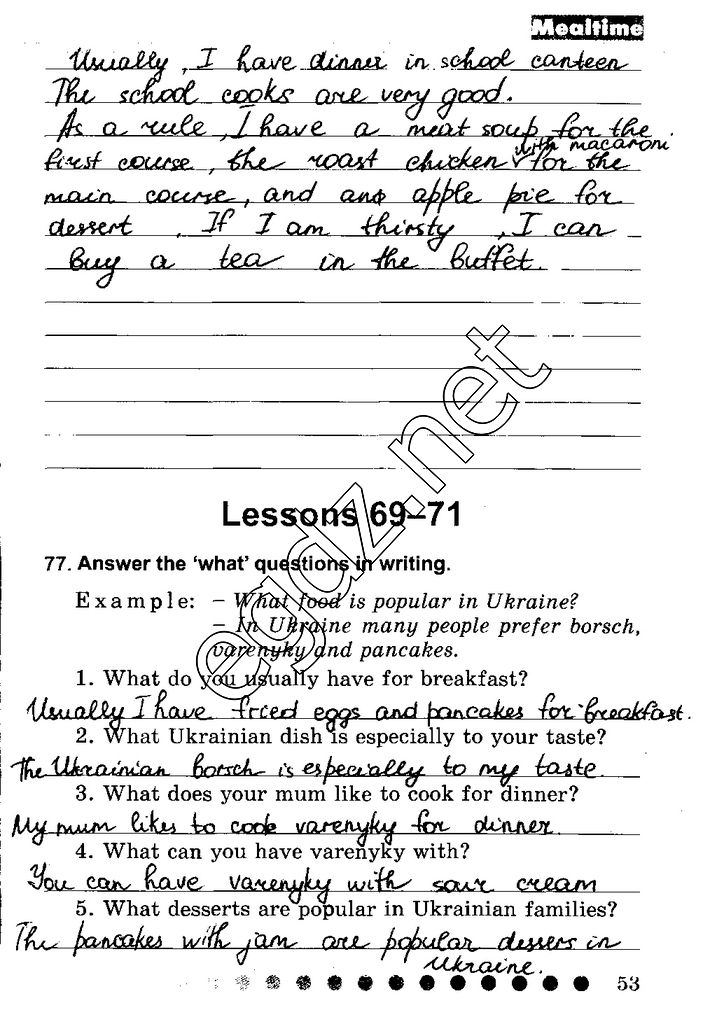 Mealtime
Usually, I have dinner in school canteen
The school cooks are very good.
As a rule, I have a meat soup for the
with macaroni
first course, the roast chicken for the
main course, and an apple pie for
dessert. If I am thirsty, I can
buy a tea in the buffet.
egdz.net
Lessons 69–71
77. Answer the 'what' questions in writing.
Example: – What food is popular in Ukraine?
– In Ukraine many people prefer borsch,
varenyky and pancakes.
1. What do you usually have for breakfast?
Usually I have fried eggs and pancakes for breakfast.
2. What Ukrainian dish is especially to your taste?
The Ukrainian borsch is especially to my taste.
3. What does your mum like to cook for dinner?
My mum likes to cook varenyky for dinner.
4. What can you have varenyky with?
You can have varenyky with sour cream
5. What desserts are popular in Ukrainian families?
The pancakes with jam are popular dessers in
Ukraine.
53